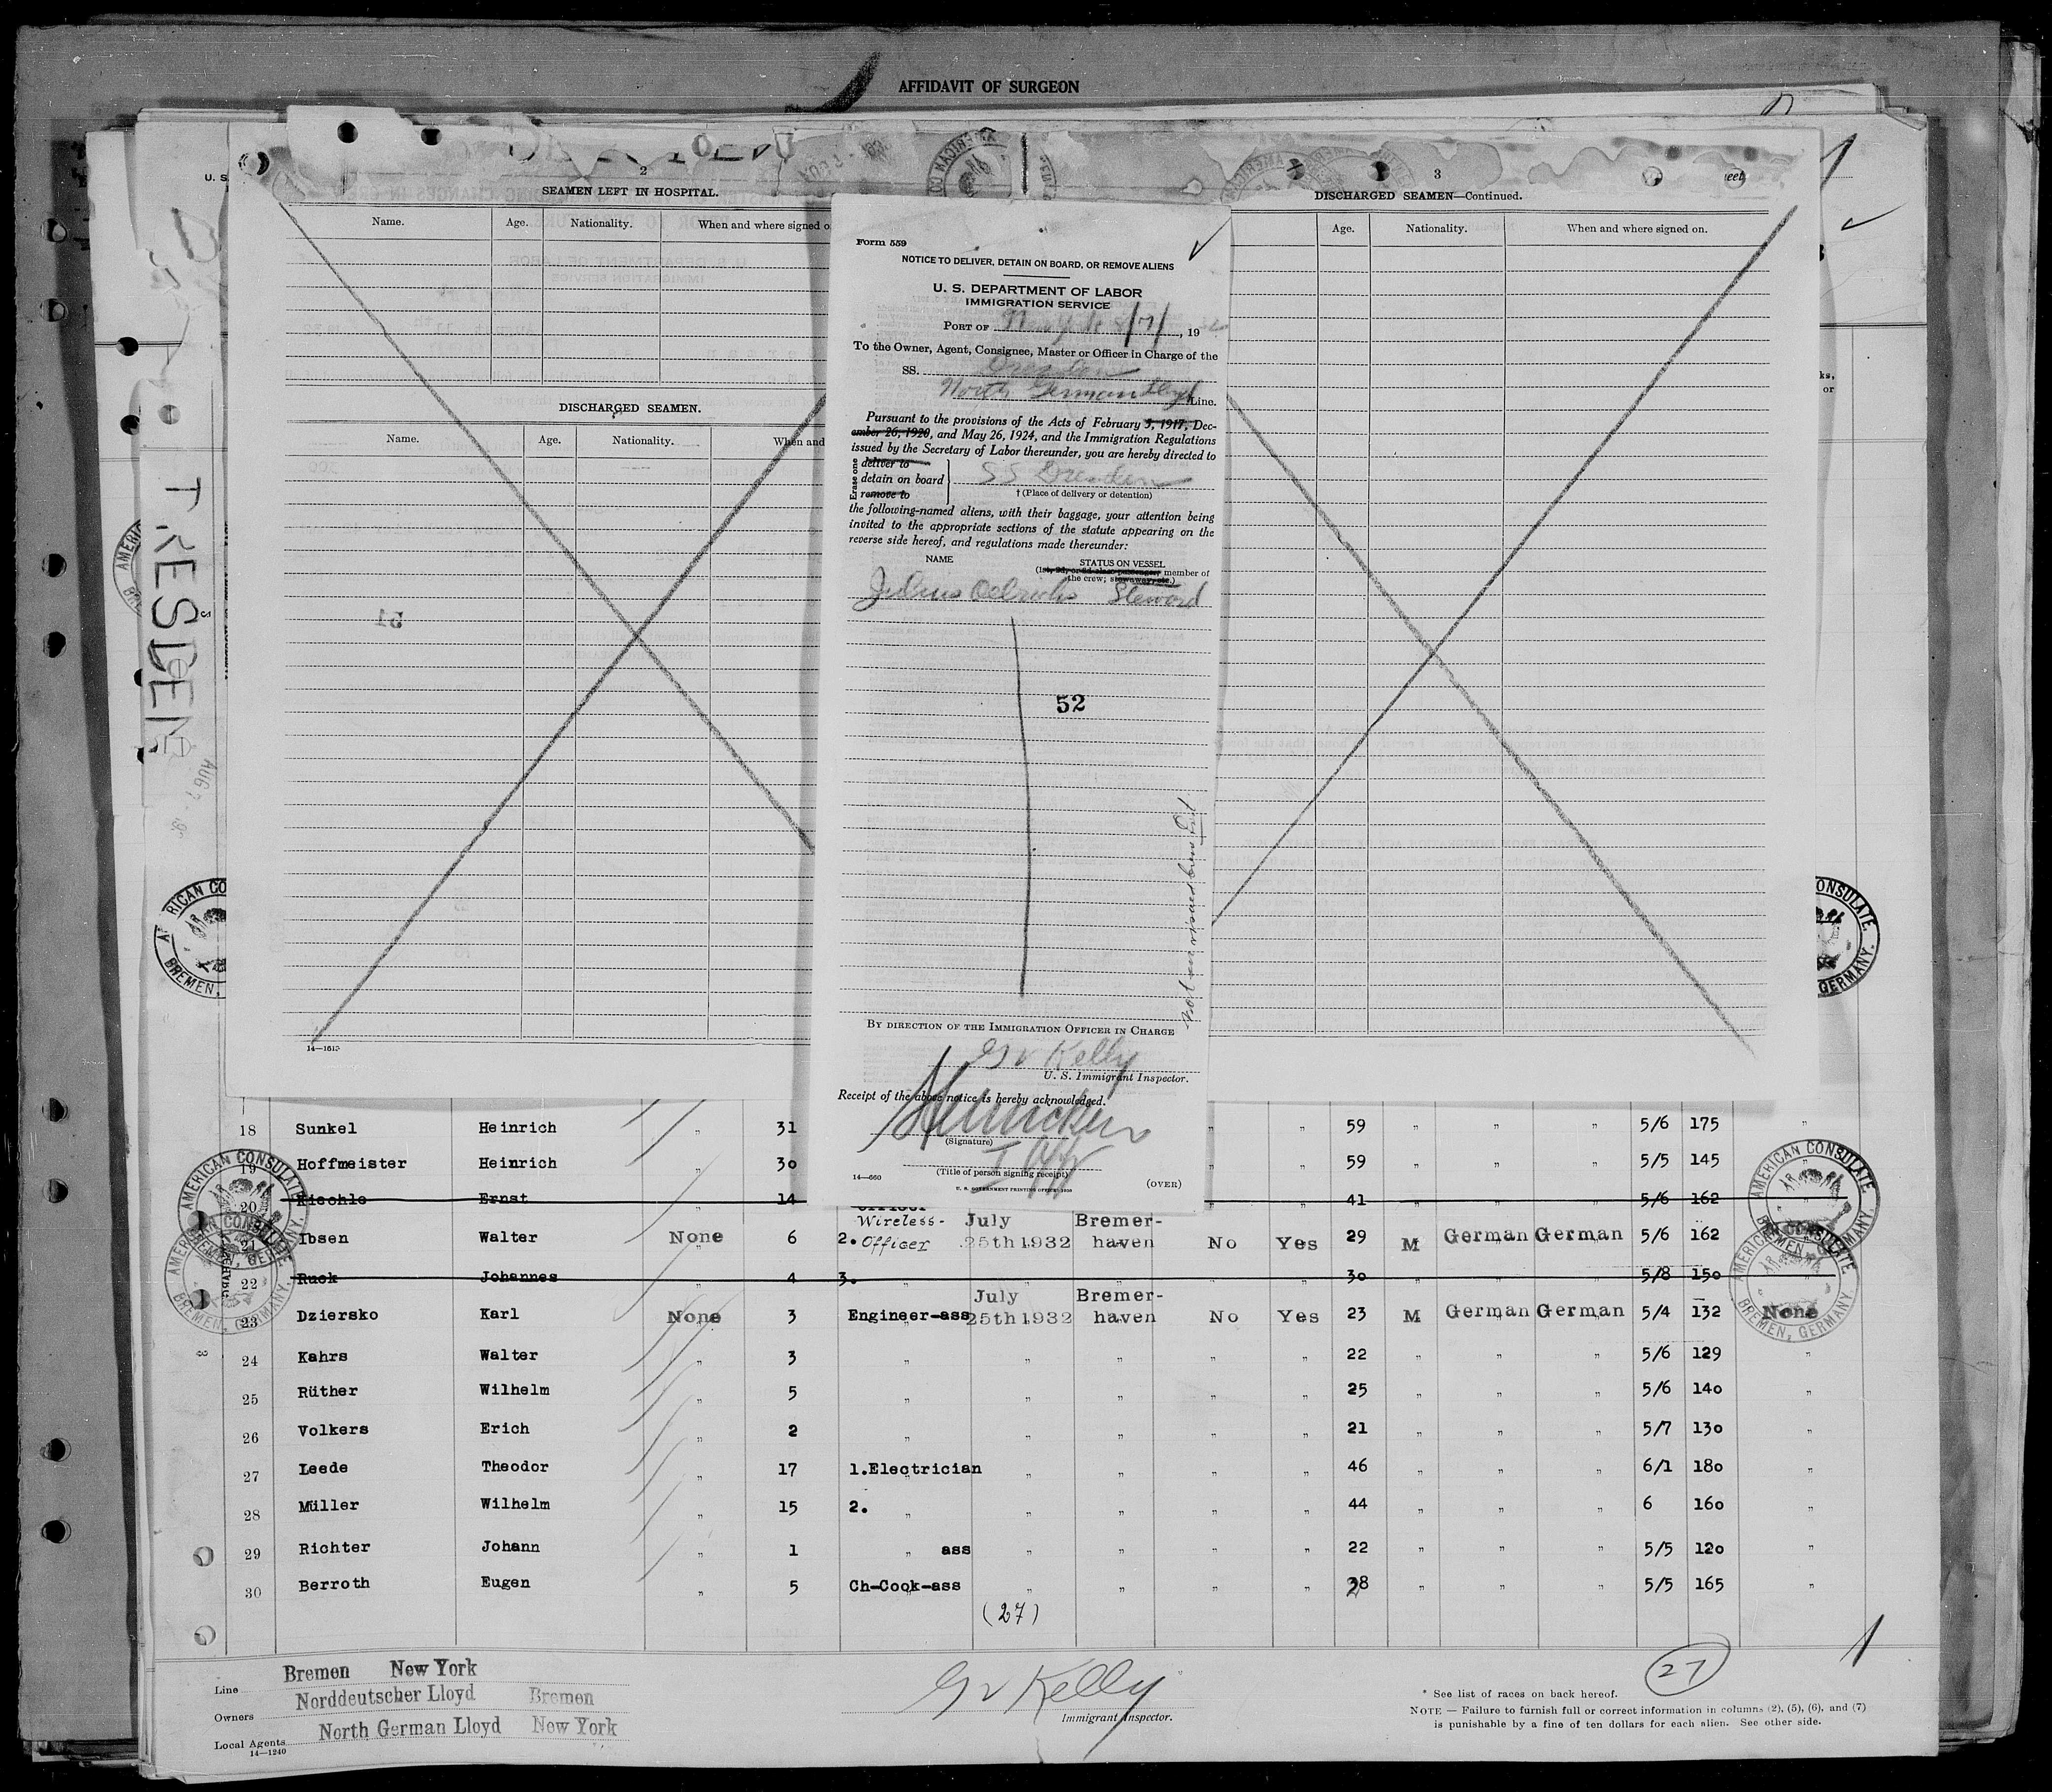 AFFIDAVIT OF SURGEON
U. S.
2
SEAMEN LEFT IN HOSPITAL.
Name. Age. Nationality. When and where signed o
DISCHARGED SEAMEN.
Name. Age. Nationality. When and
14—1613
3
DISCHARGED SEAMEN—Continued.
Age. Nationality. When and where signed on.
eet
ks,
or
AUG 7
Form 559
NOTICE TO DELIVER, DETAIN ON BOARD, OR REMOVE ALIENS
U. S. DEPARTMENT OF LABOR
IMMIGRATION SERVICE
PORT OF New York 8/7/, 1932
To the Owner, Agent, Consignee, Master or Officer in Charge of the
SS. Dresden
North German Lloyd Line.
Pursuant to the provisions of the Acts of February 5, 1917, Dec-
ember 26, 1920, and May 26, 1924, and the Immigration Regulations
issued by the Secretary of Labor thereunder, you are hereby directed to
Erase one
deliver to
detain on board SS Dresden
remove to † (Place of delivery or detention)
the following-named aliens, with their baggage, your attention being
invited to the appropriate sections of the statute appearing on the
reverse side hereof, and regulations made thereunder:
NAME STATUS ON VESSEL
(1st, 2d, or 3d class passenger, member of
the crew; stowaway, etc.)
Julius Oelrichs Steward
52
Not on visaed crew list
BY DIRECTION OF THE IMMIGRATION OFFICER IN CHARGE
G V Kelly
U. S. Immigrant Inspector.
Receipt of the above notice is hereby acknowledged.
(Signature)
I Off
(Title of person signing receipt)
14—660 (OVER)
U. S. GOVERNMENT PRINTING OFFICE: 1930
18 Sunkel Heinrich " 31 " " 59 " " " 5/6 175 "
19 Hoffmeister Heinrich " 30 " " 59 " " " 5/5 145 "
20 Kiechle Ernst 14 41 5/6 162 "
21 Ibsen Walter None 6 2. Wireless-Officer July 25th 1932 Bremer-haven No Yes 29 M German German 5/6 162
22 Ruck Johannes " 4 3. " " " " " 30 " " " 5/8 150 "
23 Dziersko Karl None 3 Engineer-ass July 25th 1932 Bremer-haven No Yes 23 M German German 5/4 132 None
24 Kahrs Walter " 3 " " " " " 22 " " " 5/6 129 "
25 Rüther Wilhelm " 5 " " " " " 25 " " " 5/6 140 "
26 Volkers Erich " 2 " " " " " 21 " " " 5/7 130 "
27 Leede Theodor " 17 1.Electrician " " " " 46 " " " 6/1 180 "
28 Müller Wilhelm " 15 2. " " " " " 44 " " " 6 160 "
29 Richter Johann " 1 " ass " " " " 22 " " " 5/5 120 "
30 Berroth Eugen " 5 Ch-Cook-ass " " " " 28 " " " 5/5 165 "
(27)
AMERICAN CONSULATE
BREMEN, GERMANY.
27
Line Bremen New York
Owners Norddeutscher Lloyd Bremen
Local Agents North German Lloyd New York
14—1240
G V Kelly
Immigrant Inspector.
* See list of races on back hereof.
NOTE — Failure to furnish full or correct information in columns (2), (5), (6), and (7)
is punishable by a fine of ten dollars for each alien. See other side.